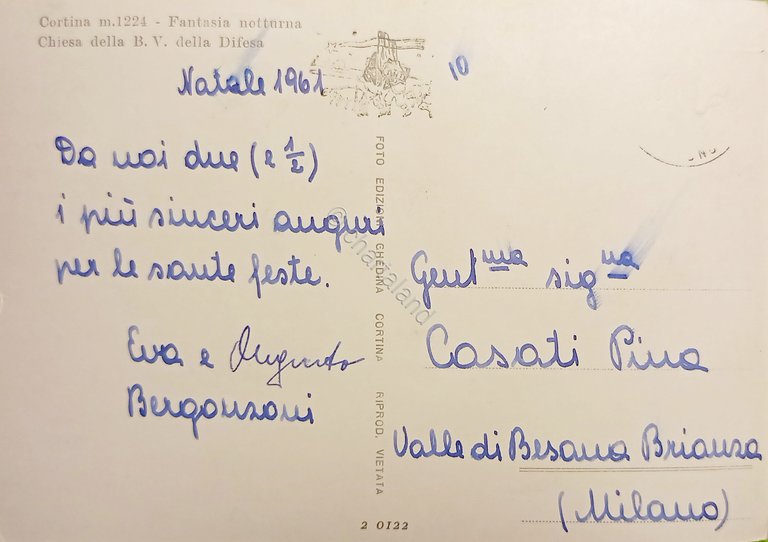 Cortina m.1224 - Fantasia notturna
Chiesa della B. V. della Difesa
Natale 1961
10
Da noi due (e 1/2)
i più sinceri auguri
per le sante feste.
Eva e Augusto
Bergonzoni
FOTO EDIZIONI GHEDINA CORTINA RIPROD. VIETATA
Gent.ma sig.na
Casati Pina
Valle di Besana Brianza
(Milano)
2 0122